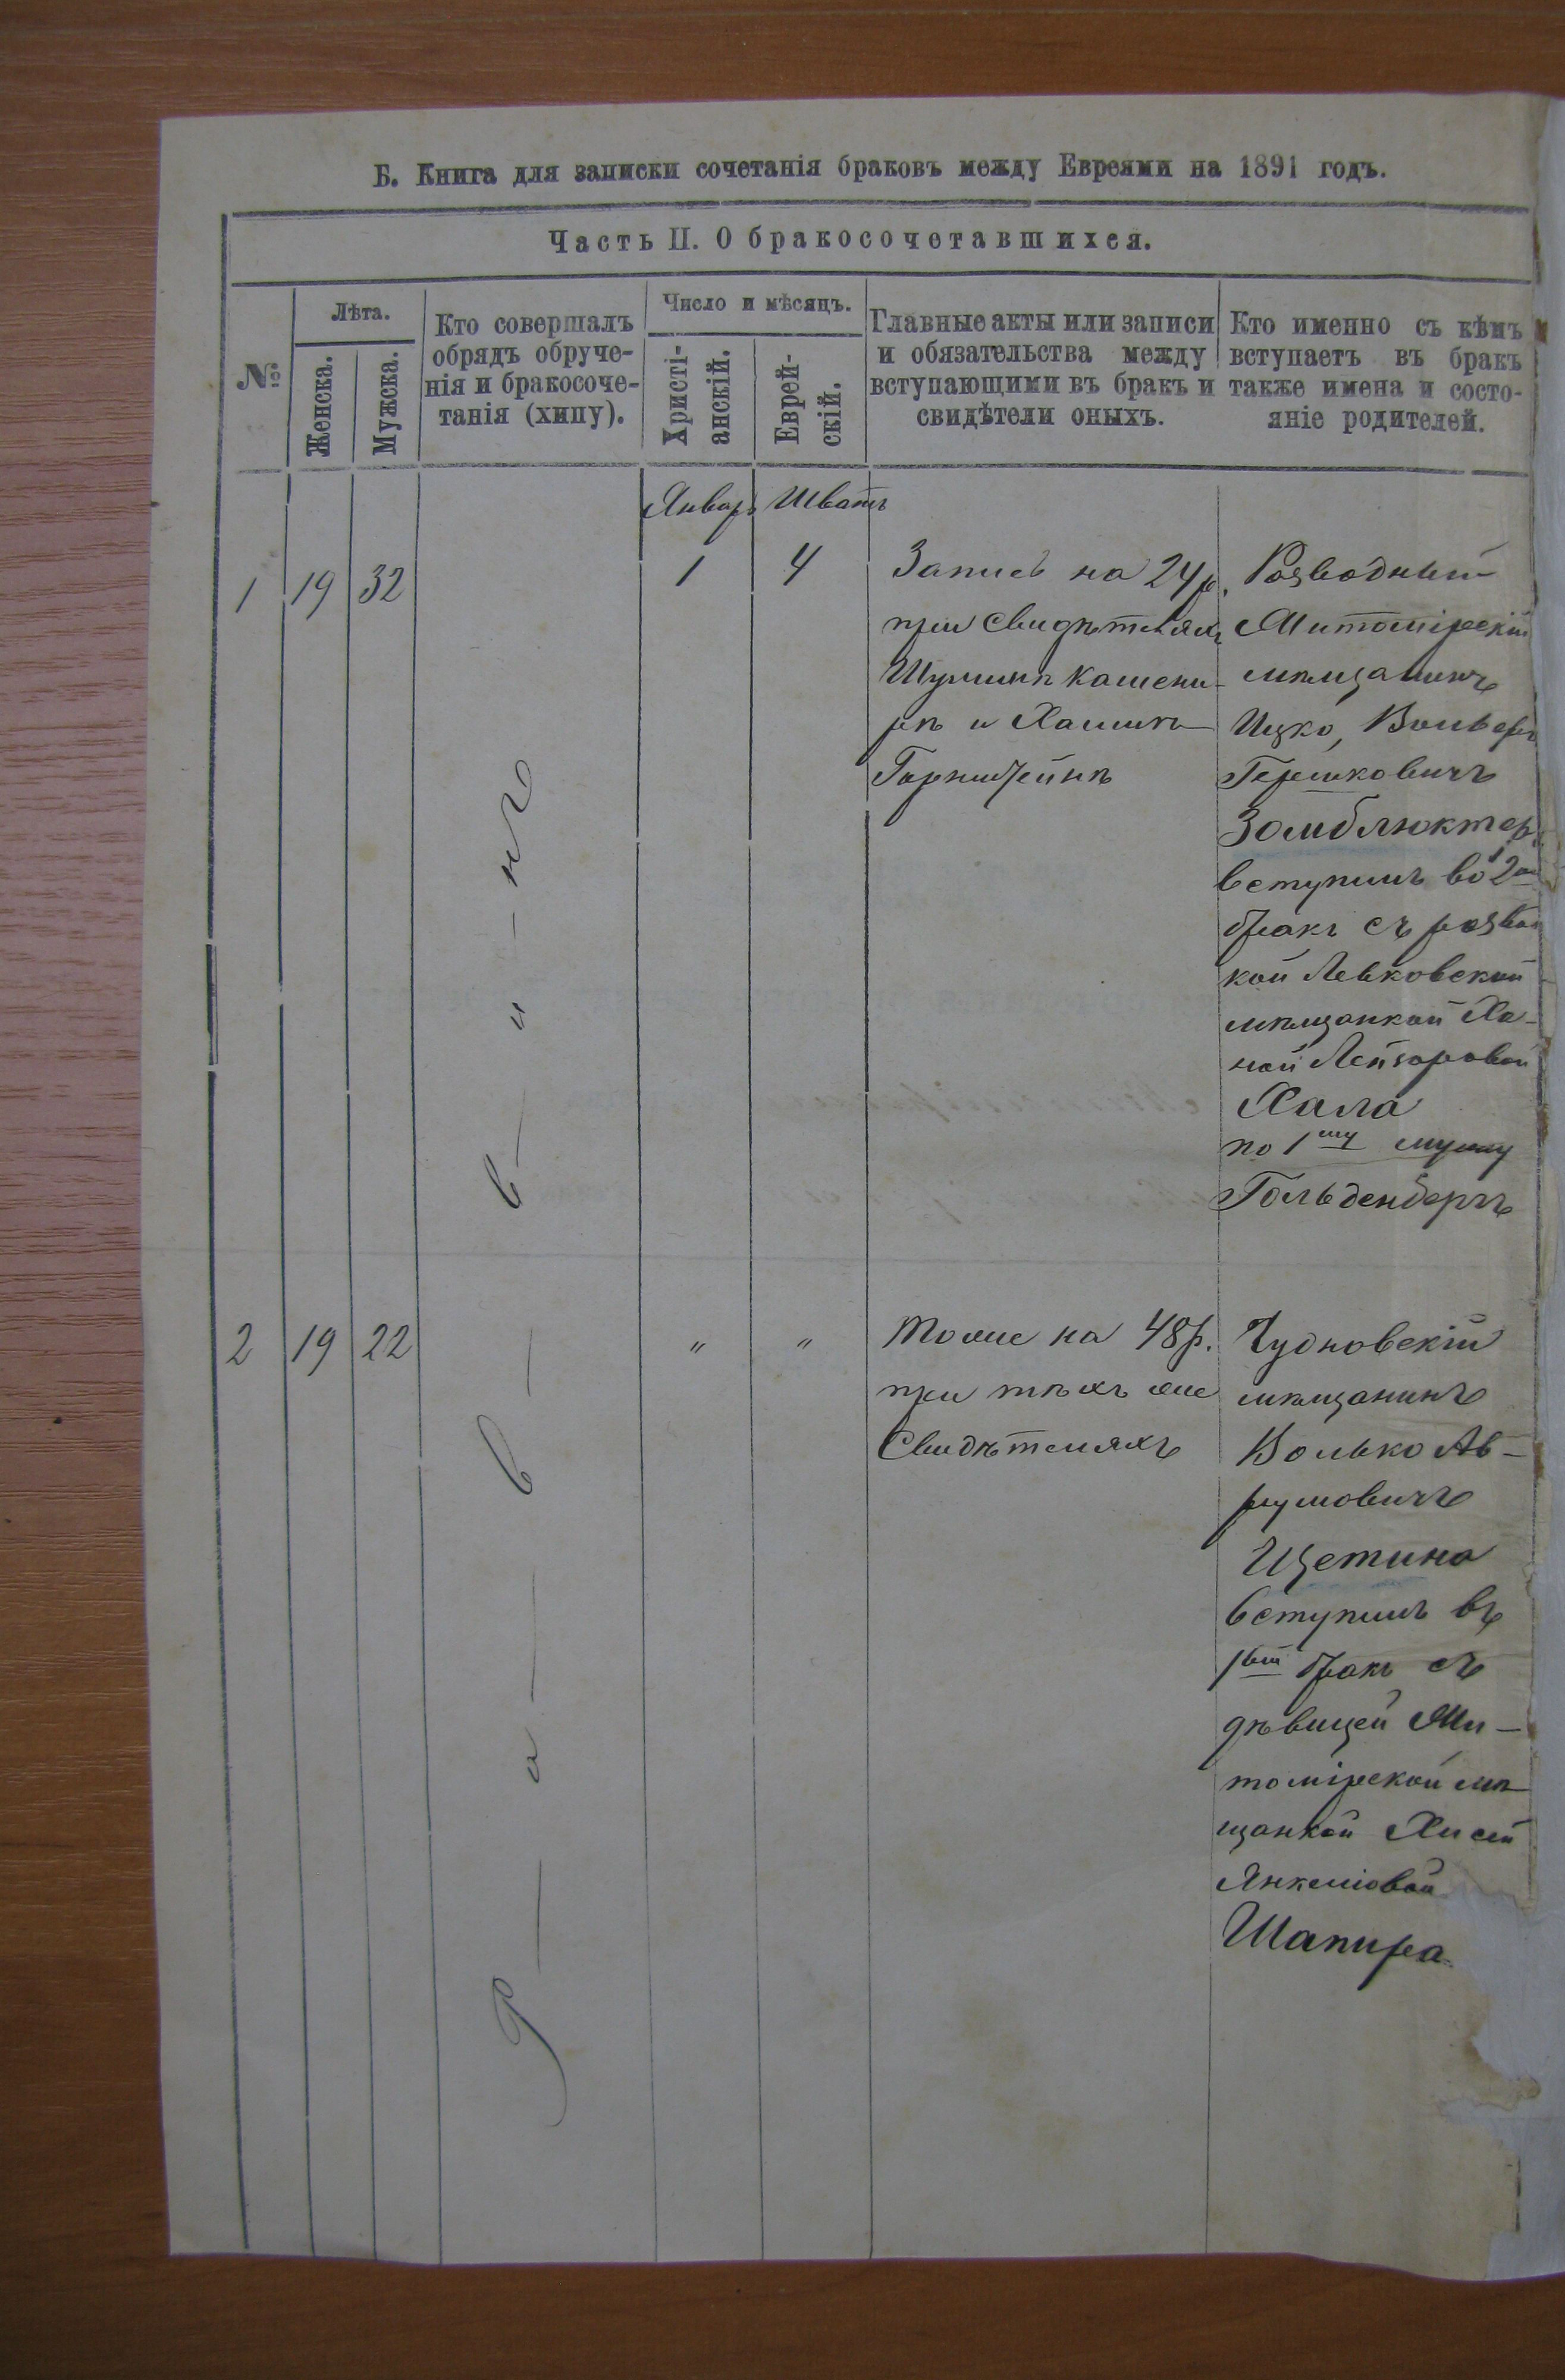 Б. Книга для записки сочетанія браковъ между Евреями на 1891 годъ.
Часть II. О бракосочетавшихся.
№
Лѣта.
Женска.
Мужска.
Кто совершалъ
обрядъ обруче-
нія и бракосоче-
танія (хипу).
Число и мѣсяцъ.
Христі-
анскій.
Еврей-
скій.
Главные акты или записи
и обязательства между
вступающими въ бракъ и
свидѣтели оныхъ.
Кто именно съ кѣмъ
вступаетъ въ бракъ
также имена и состо-
яніе родителей.
Январь Шватъ
1 19 32
1 4
Запись на 24 р.
при свидѣтеляхъ
Шулимѣ Кашени-
рѣ и Хаимѣ
Горнштейнѣ
Розводный
Житомірскій
мѣщанинъ
Ицко, Вольфъ
Гершковичъ
Зомблюктеръ
вступилъ во 2ой
бракъ съ розвод
кой Левковской
мѣщанкой Ха-
ной Лейзоровой
Хала
по 1му мужу
Гольденбергъ
Р-а-в-в-и-нъ
2 19 22
" "
Тоже на 48 р.
при тѣхъ же
Свидѣтеляхъ
Чудновскій
мѣщанинъ
Волько Аб-
румовичъ
Щетина
вступилъ въ
1вый бракъ съ
дѣвицей Жи-
томірской мѣ
щанкой Хисей
Янкеліовой
Шапира